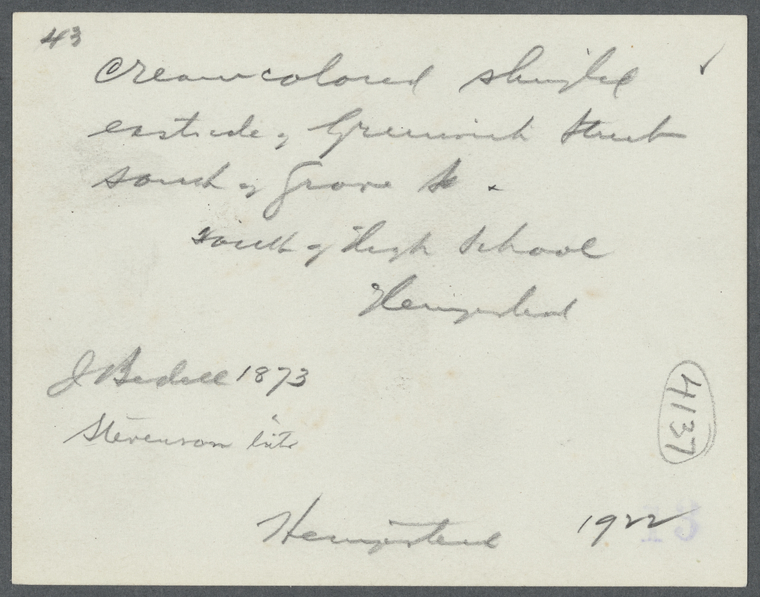 43
Cream colored shingled
east side of Greenwich Street
south of Grove St.
south of High School
Hempstead
J Bedell 1873
Stevenson
4137
Hempstead 1922